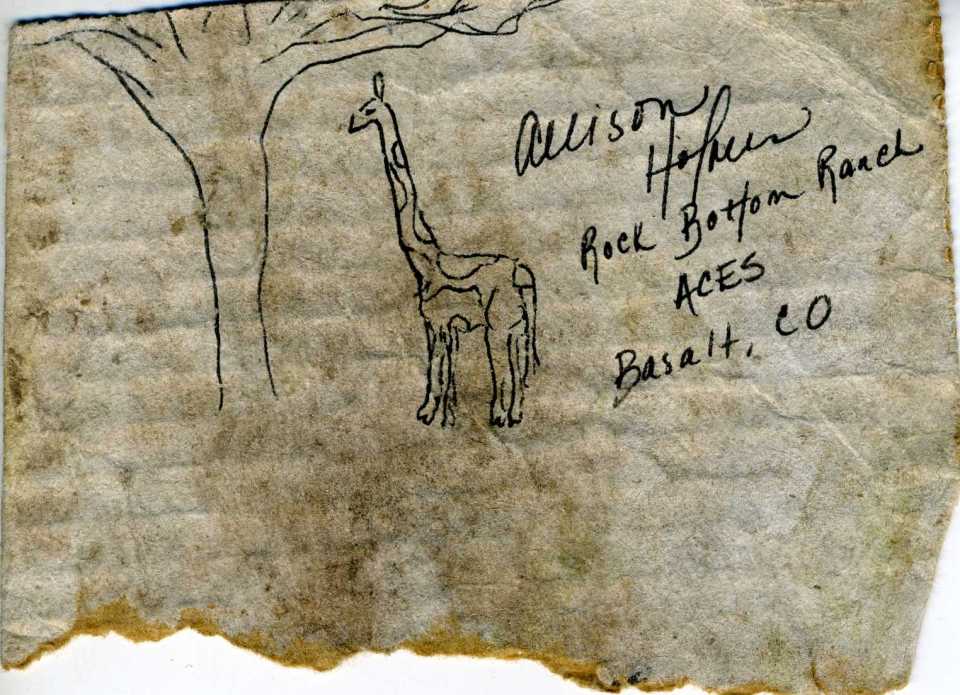 Allison
Rock Bottom Ranch
ACES
Basalt, CO